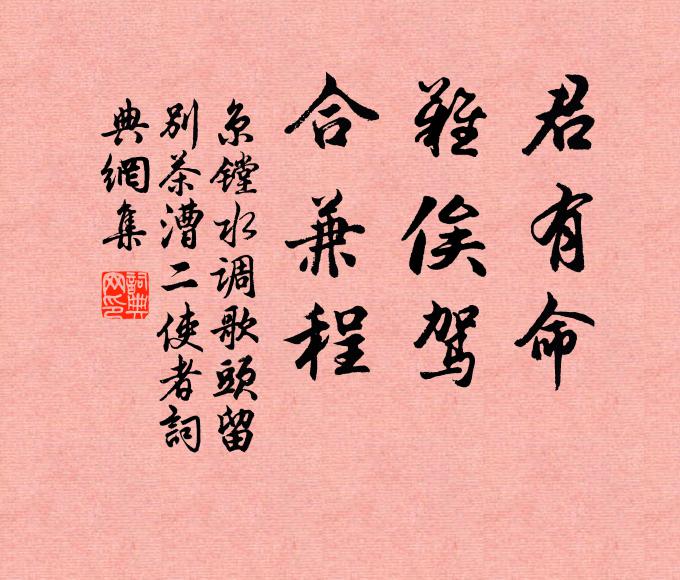 君有命
難俟駕
合兼程
京鏜水调歌頭留
别茶漕二使者詞
典網集
詞典網印